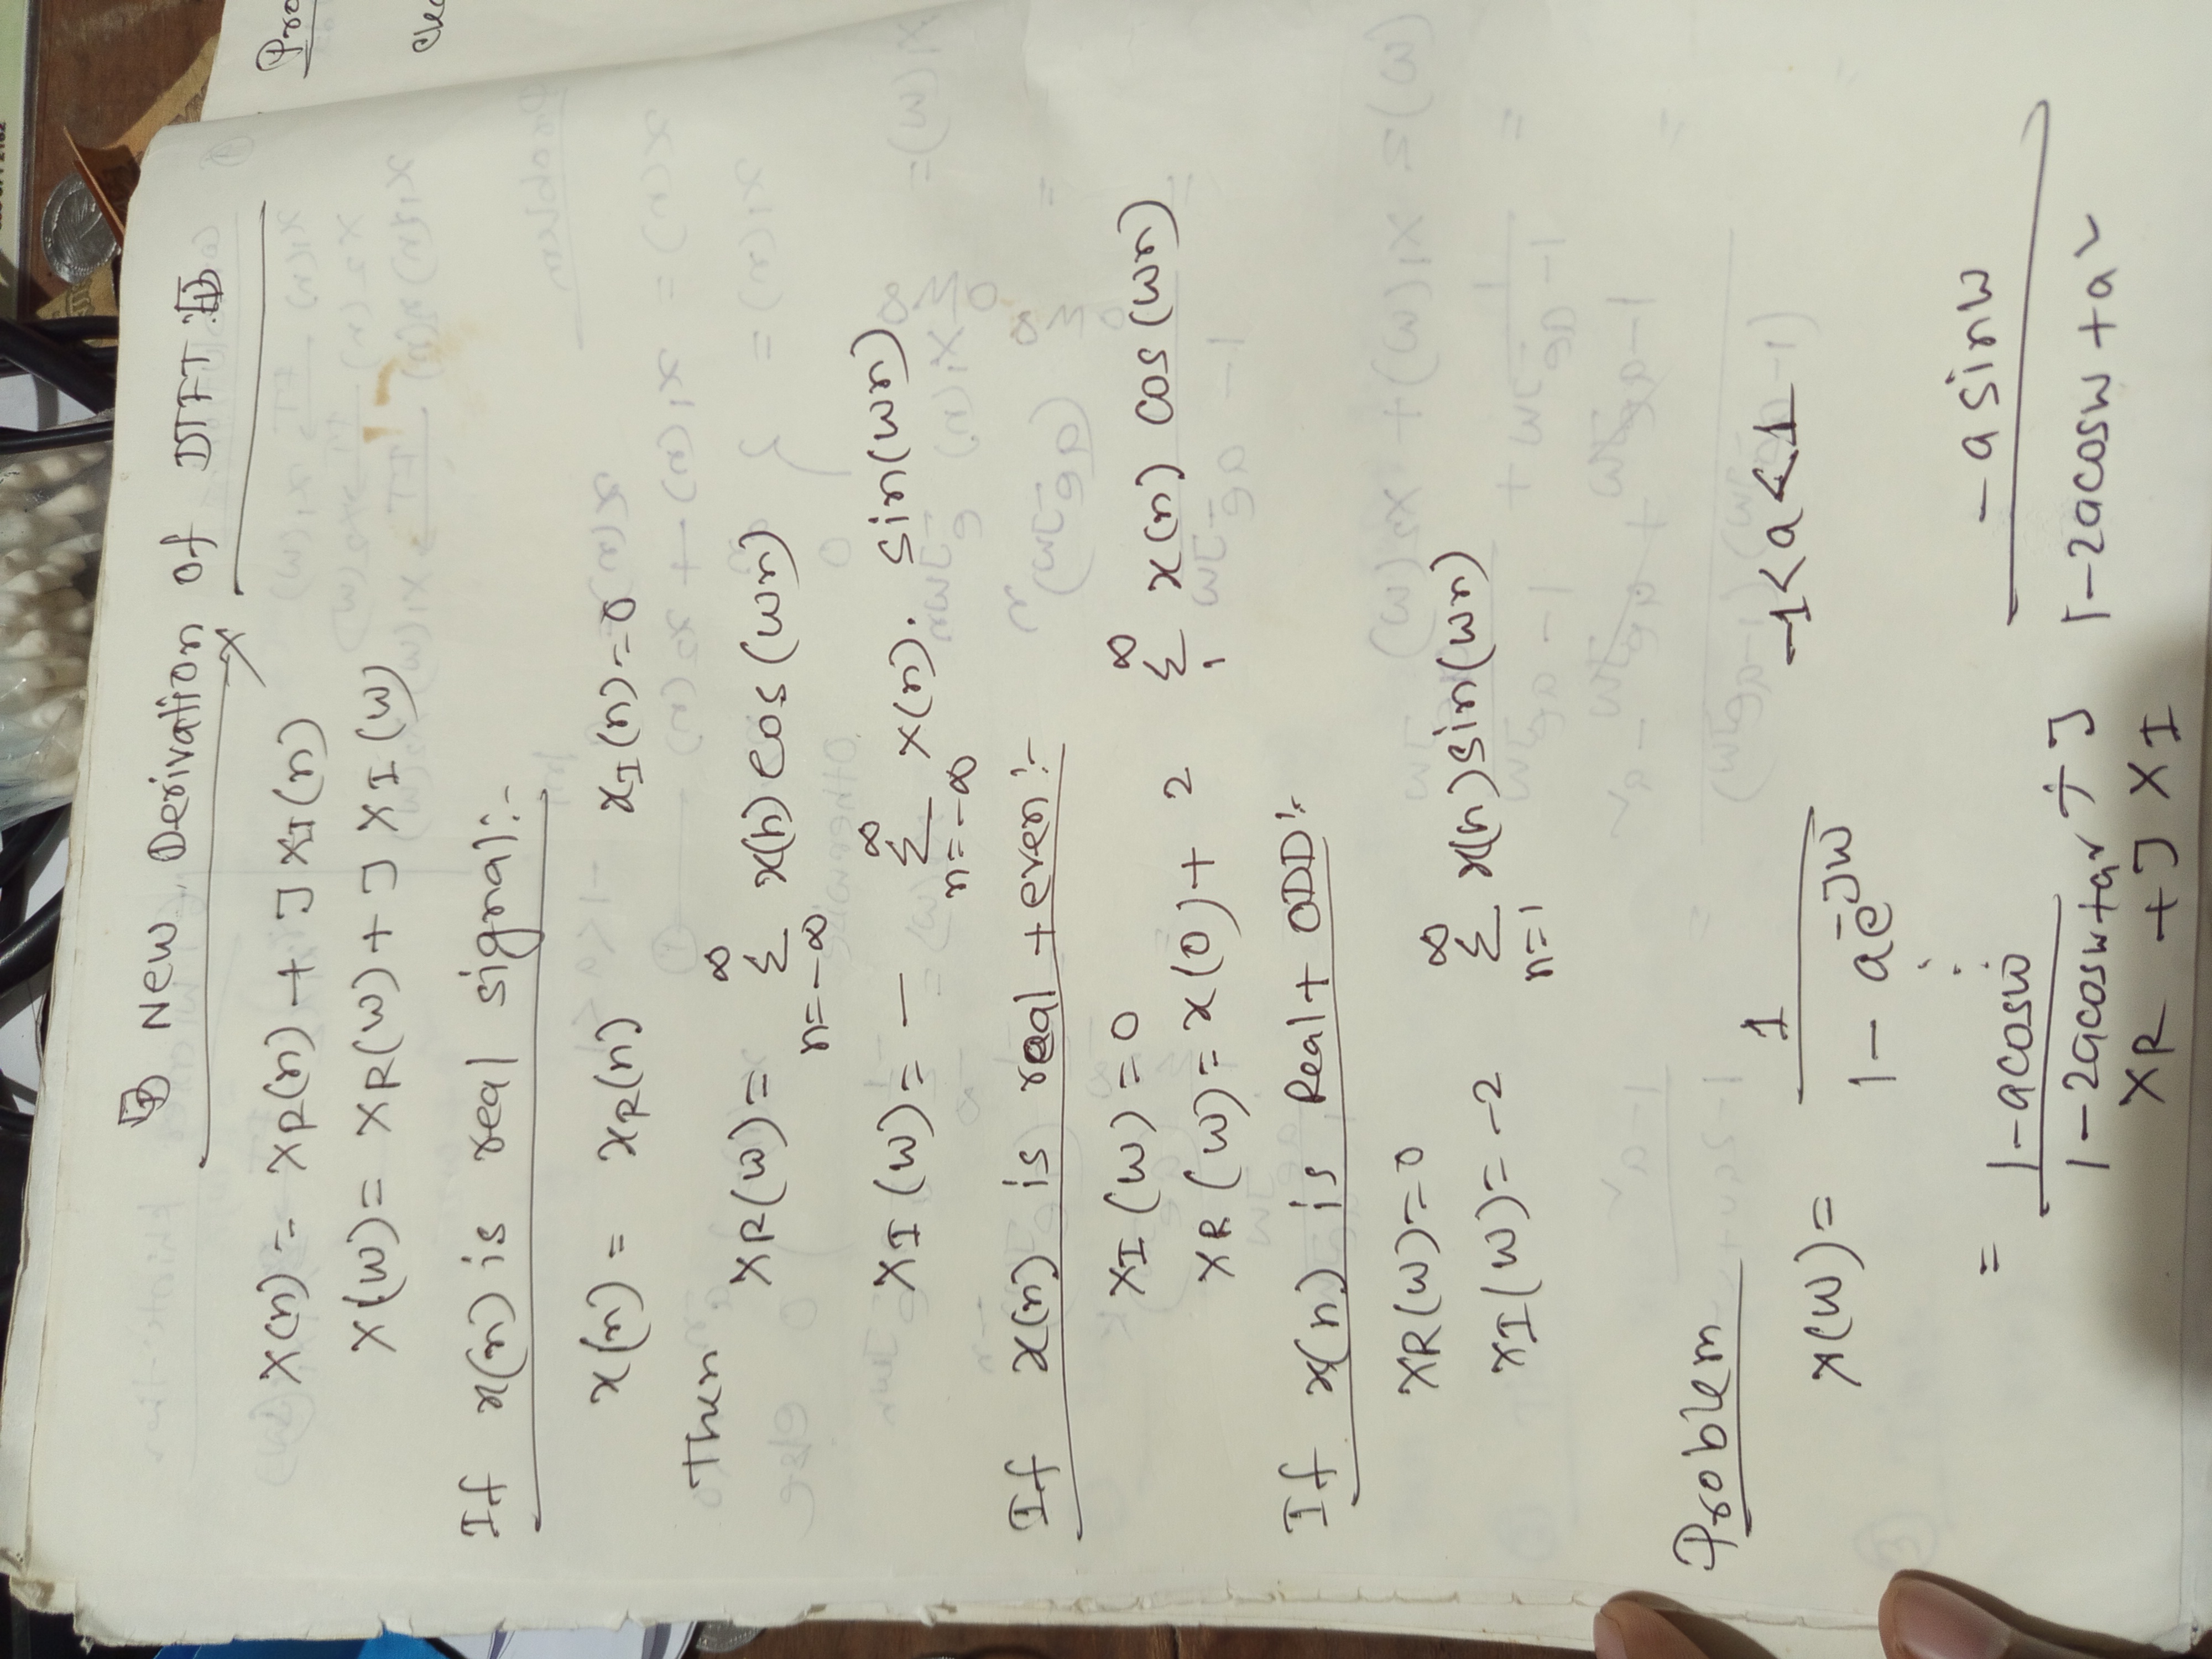 New Derivation Of DTFT
x(n) = xR(n) + J xI(n)
X(w) = XR(w) + J XI(w)
If x(n) is real signal:-
x(n) = xR(n) xI(n)=0
Then
XR(w) = ∞ Σ n=-∞ x(n) cos(wn)
XI(w) = - ∞ Σ n=-∞ x(n). sin(wn)
If x(n) is real +even:-
XI(w) = 0
XR(w) = x(0) + 2 ∞ Σ 1 x(n) cos(wn)
If x(n) is Real + ODD:-
XR(w)=0
XI(w) = -2 ∞ Σ n=1 x(n) sin(wn)
Problem
X(w) = 1 / 1 - ae^-Jw -1<a<1
:
= 1-acosw / 1-2acosw+a² + J -asinw / 1-2acosw+a²
XR + J XI
Pro